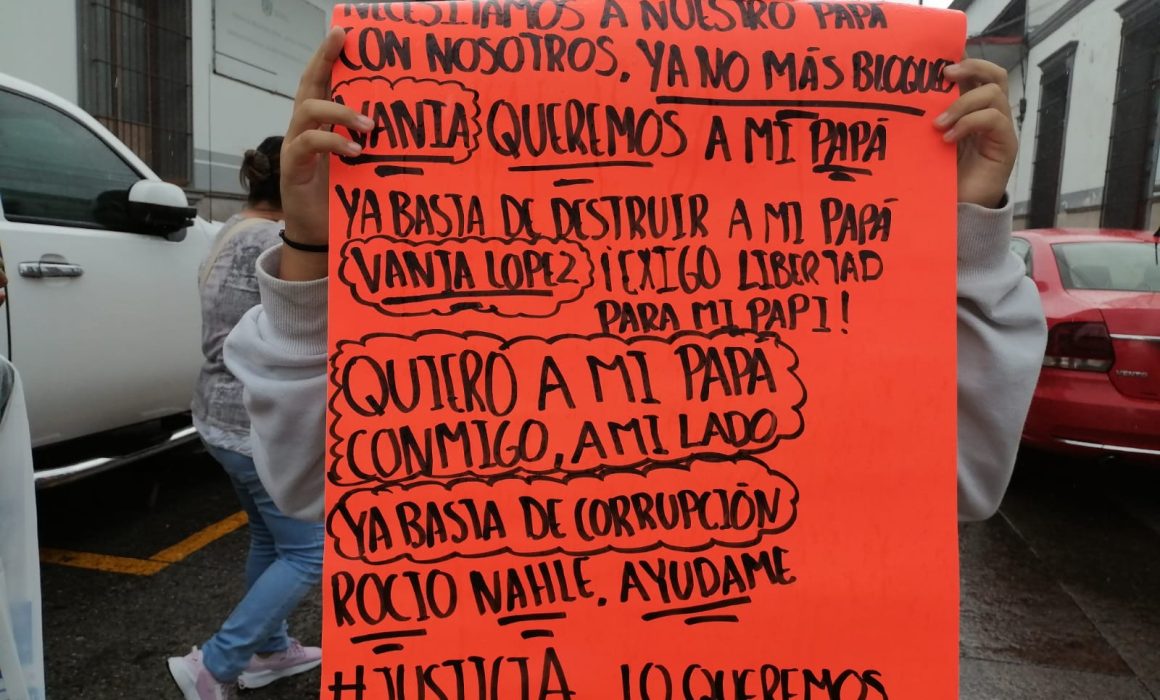 NECESITAMOS A NUESTRO PAPÁ
CON NOSOTROS. YA NO MÁS BLOQUEO
VANIA QUEREMOS A MI PAPÁ
YA BASTA DE DESTRUIR A MI PAPÁ
VANIA LOPEZ ¡EXIGO LIBERTAD
PARA MI PAPI!
QUIERO A MI PAPÁ
CONMIGO, A MI LADO
YA BASTA DE CORRUPCIÓN
ROCIO NAHLE. AYUDAME
#JUSTICIA LO QUEREMOS
VENTO